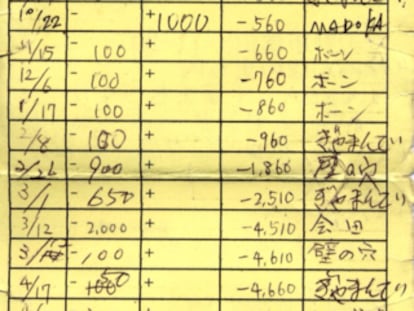 10/22 - +1000 -560 MADOKA
11/15 - 100 + -660 ボーン
12/6 - 100 + -760 ボーン
1/17 - 100 + -860 ボーン
2/8 - 100 + -960 ぎやまんてい
2/26 - 900 + -1,860 壁の穴
3/1 - 650 + -2,510 ぎやまんてい
3/12 - 2,000 + -4,510 会田
3/ - 100 + -4,610 壁の穴
4/17 - 50 + -4,660 ぎやまんてい